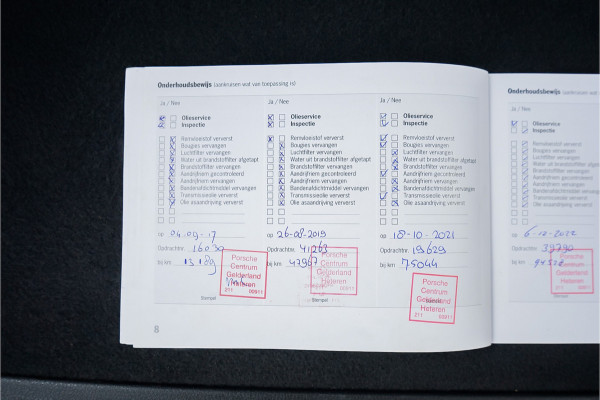 Onderhoudsbewijs (aankruisen wat van toepassing is)
Ja / Nee
Olieservice
Inspectie
Remvloeistof ververst
Bougies vervangen
Luchtfilter vervangen
Water uit brandstoffilter afgetapt
Brandstoffilter vervangen
Aandrijfriem gecontroleerd
Aandrijfriem vervangen
Bandenafdichtmiddel vervangen
Transmissieolie ververst
Olie asaandrijving ververst
op 04-09-17
Opdrachtnr. 16030
bij km 13189
Porsche
Centrum
Gelderland
Heteren
211 00911
Stempel
Ja / Nee
Olieservice
Inspectie
Remvloeistof ververst
Bougies vervangen
Luchtfilter vervangen
Water uit brandstoffilter afgetapt
Brandstoffilter vervangen
Aandrijfriem gecontroleerd
Aandrijfriem vervangen
Bandenafdichtmiddel vervangen
Transmissieolie ververst
Olie asaandrijving ververst
op 26-08-2019
Opdrachtnr. 41263
bij km 47967
Porsche
Centrum
Gelderland
Heteren
211 00911
Stempel
Ja / Nee
Olieservice
Inspectie
Remvloeistof ververst
Bougies vervangen
Luchtfilter vervangen
Water uit brandstoffilter afgetapt
Brandstoffilter vervangen
Aandrijfriem gecontroleerd
Aandrijfriem vervangen
Bandenafdichtmiddel vervangen
Transmissieolie ververst
Olie asaandrijving ververst
op 18-10-2021
Opdrachtnr. 19629
bij km 75044
Porsche
Centrum
Gelderland
Heteren
211 00911
8
Onderhoudsbewijs (aankruisen wat
Ja / Nee
Olieservice
Inspectie
Remvloeistof ververst
Bougies vervangen
Luchtfilter vervangen
Water uit brandstoffilter
Brandstoffilter vervangen
Aandrijfriem gecontroleerd
Aandrijfriem vervangen
Bandenafdichtmiddel
Transmissieolie ververst
Olie asaandrijving ververst
op 6-12-2022
Opdrachtnr. 39790
bij km
Porsche
Centrum
Gelderland
Heteren
211 00911
Stempel